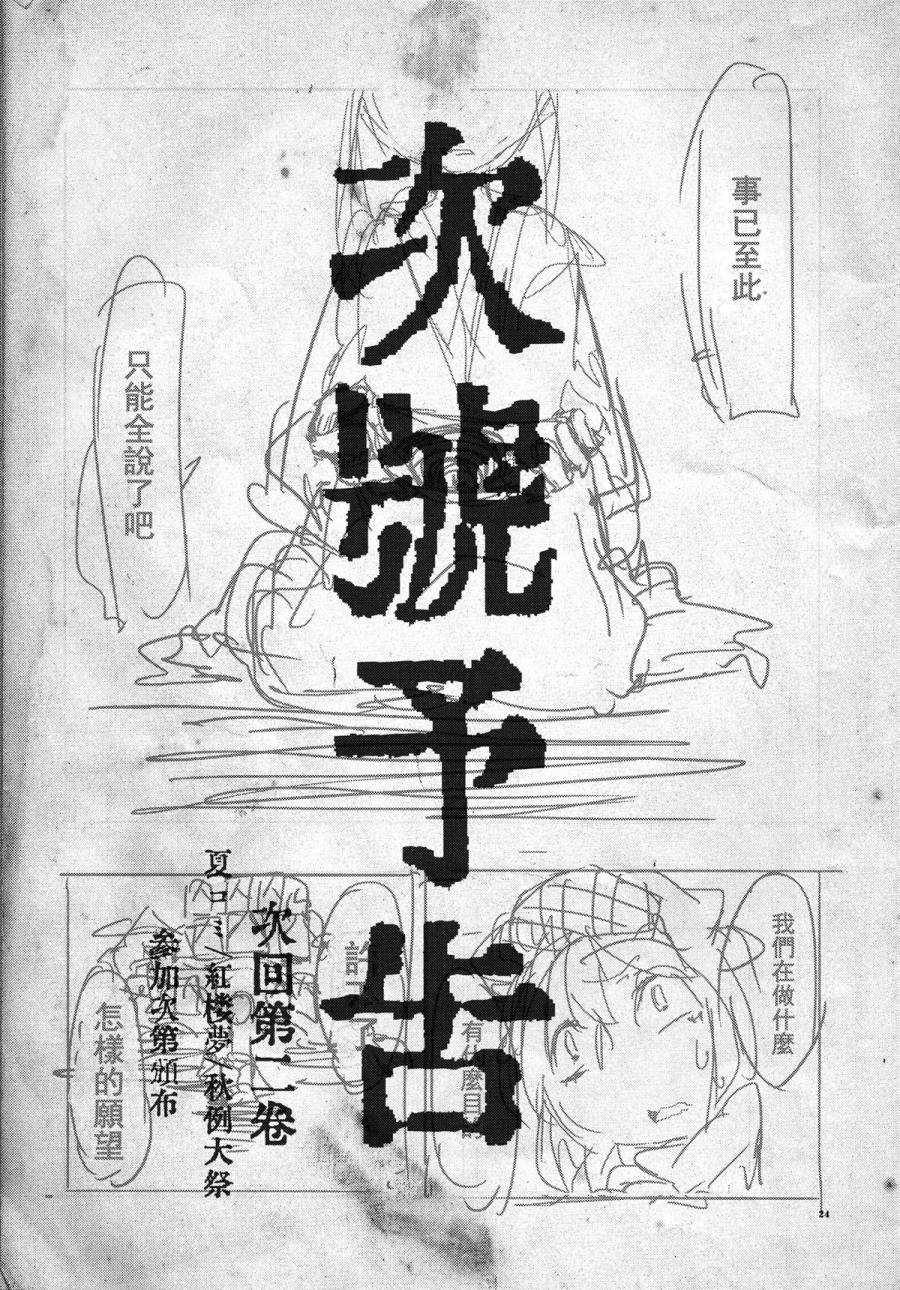 事已至此
只能全說了吧
次號予告
我們在做什麼
有什麼目的
許下了
怎樣的願望
次回第二巻
夏コミ/紅楼夢/秋例大祭
参加次第頒布
24